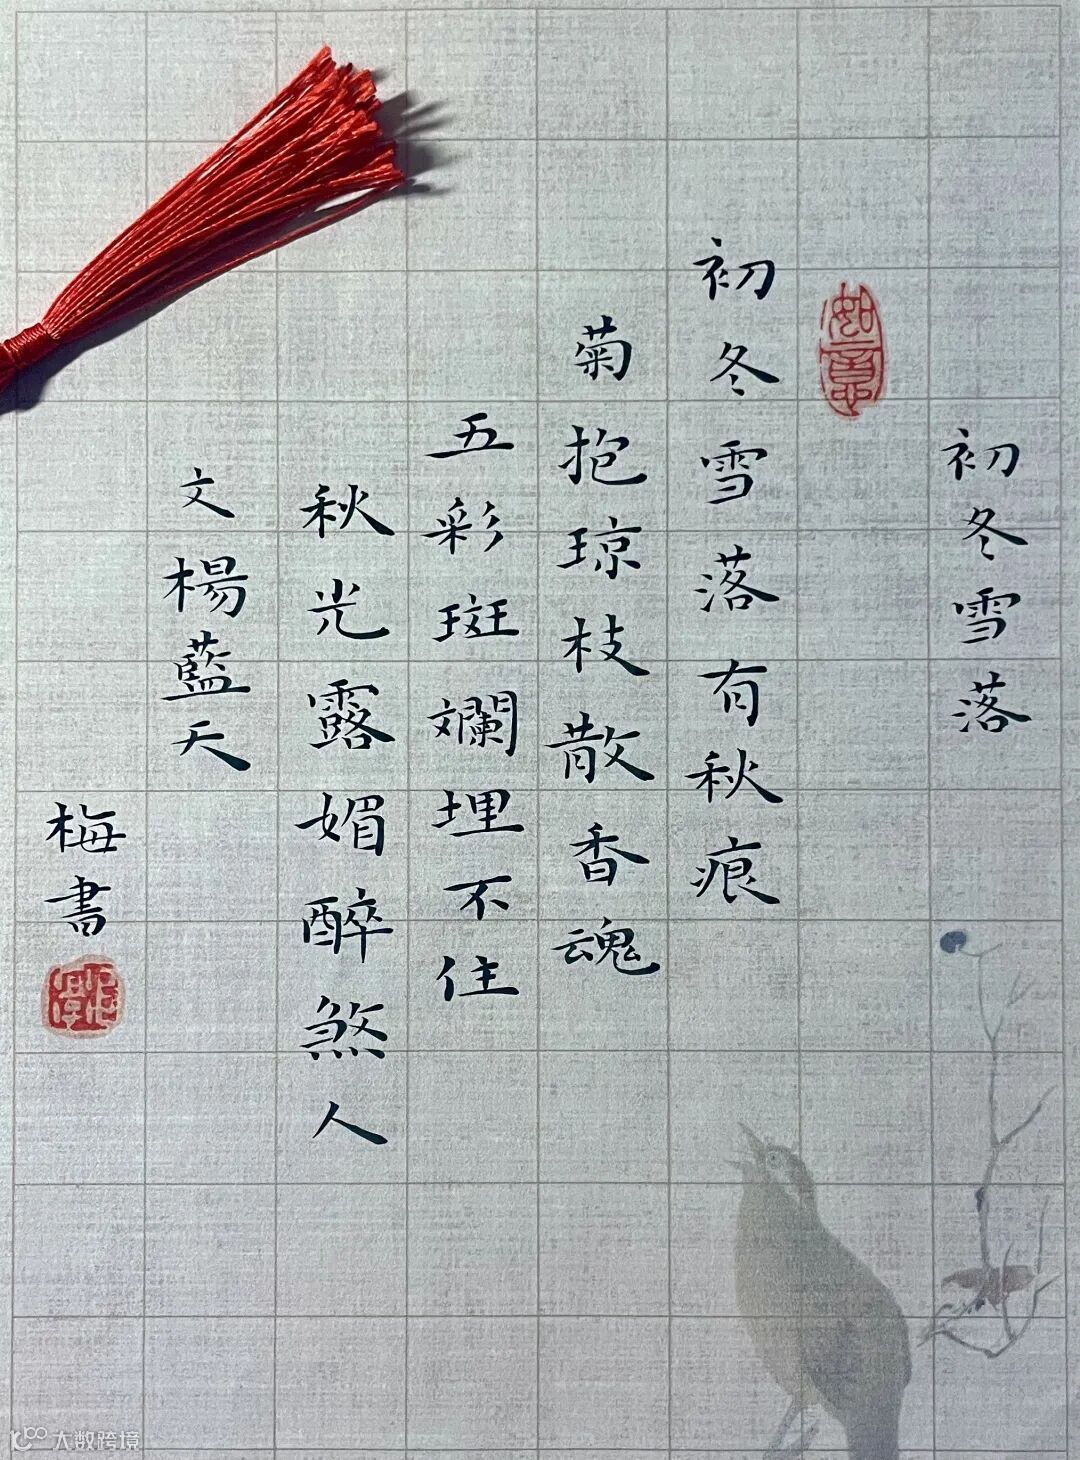 初冬雪落
如意
初冬雪落有秋痕
菊抱琼枝散香魂
五彩斑斕埋不住
秋光露媚醉煞人
文楊藍天
梅書
大数跨境